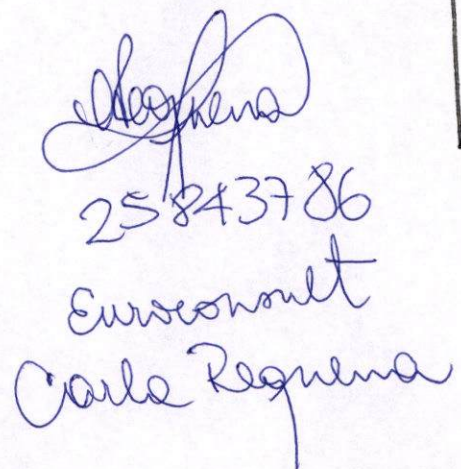 Requena
25843786
Euroconsult
Carla Requena